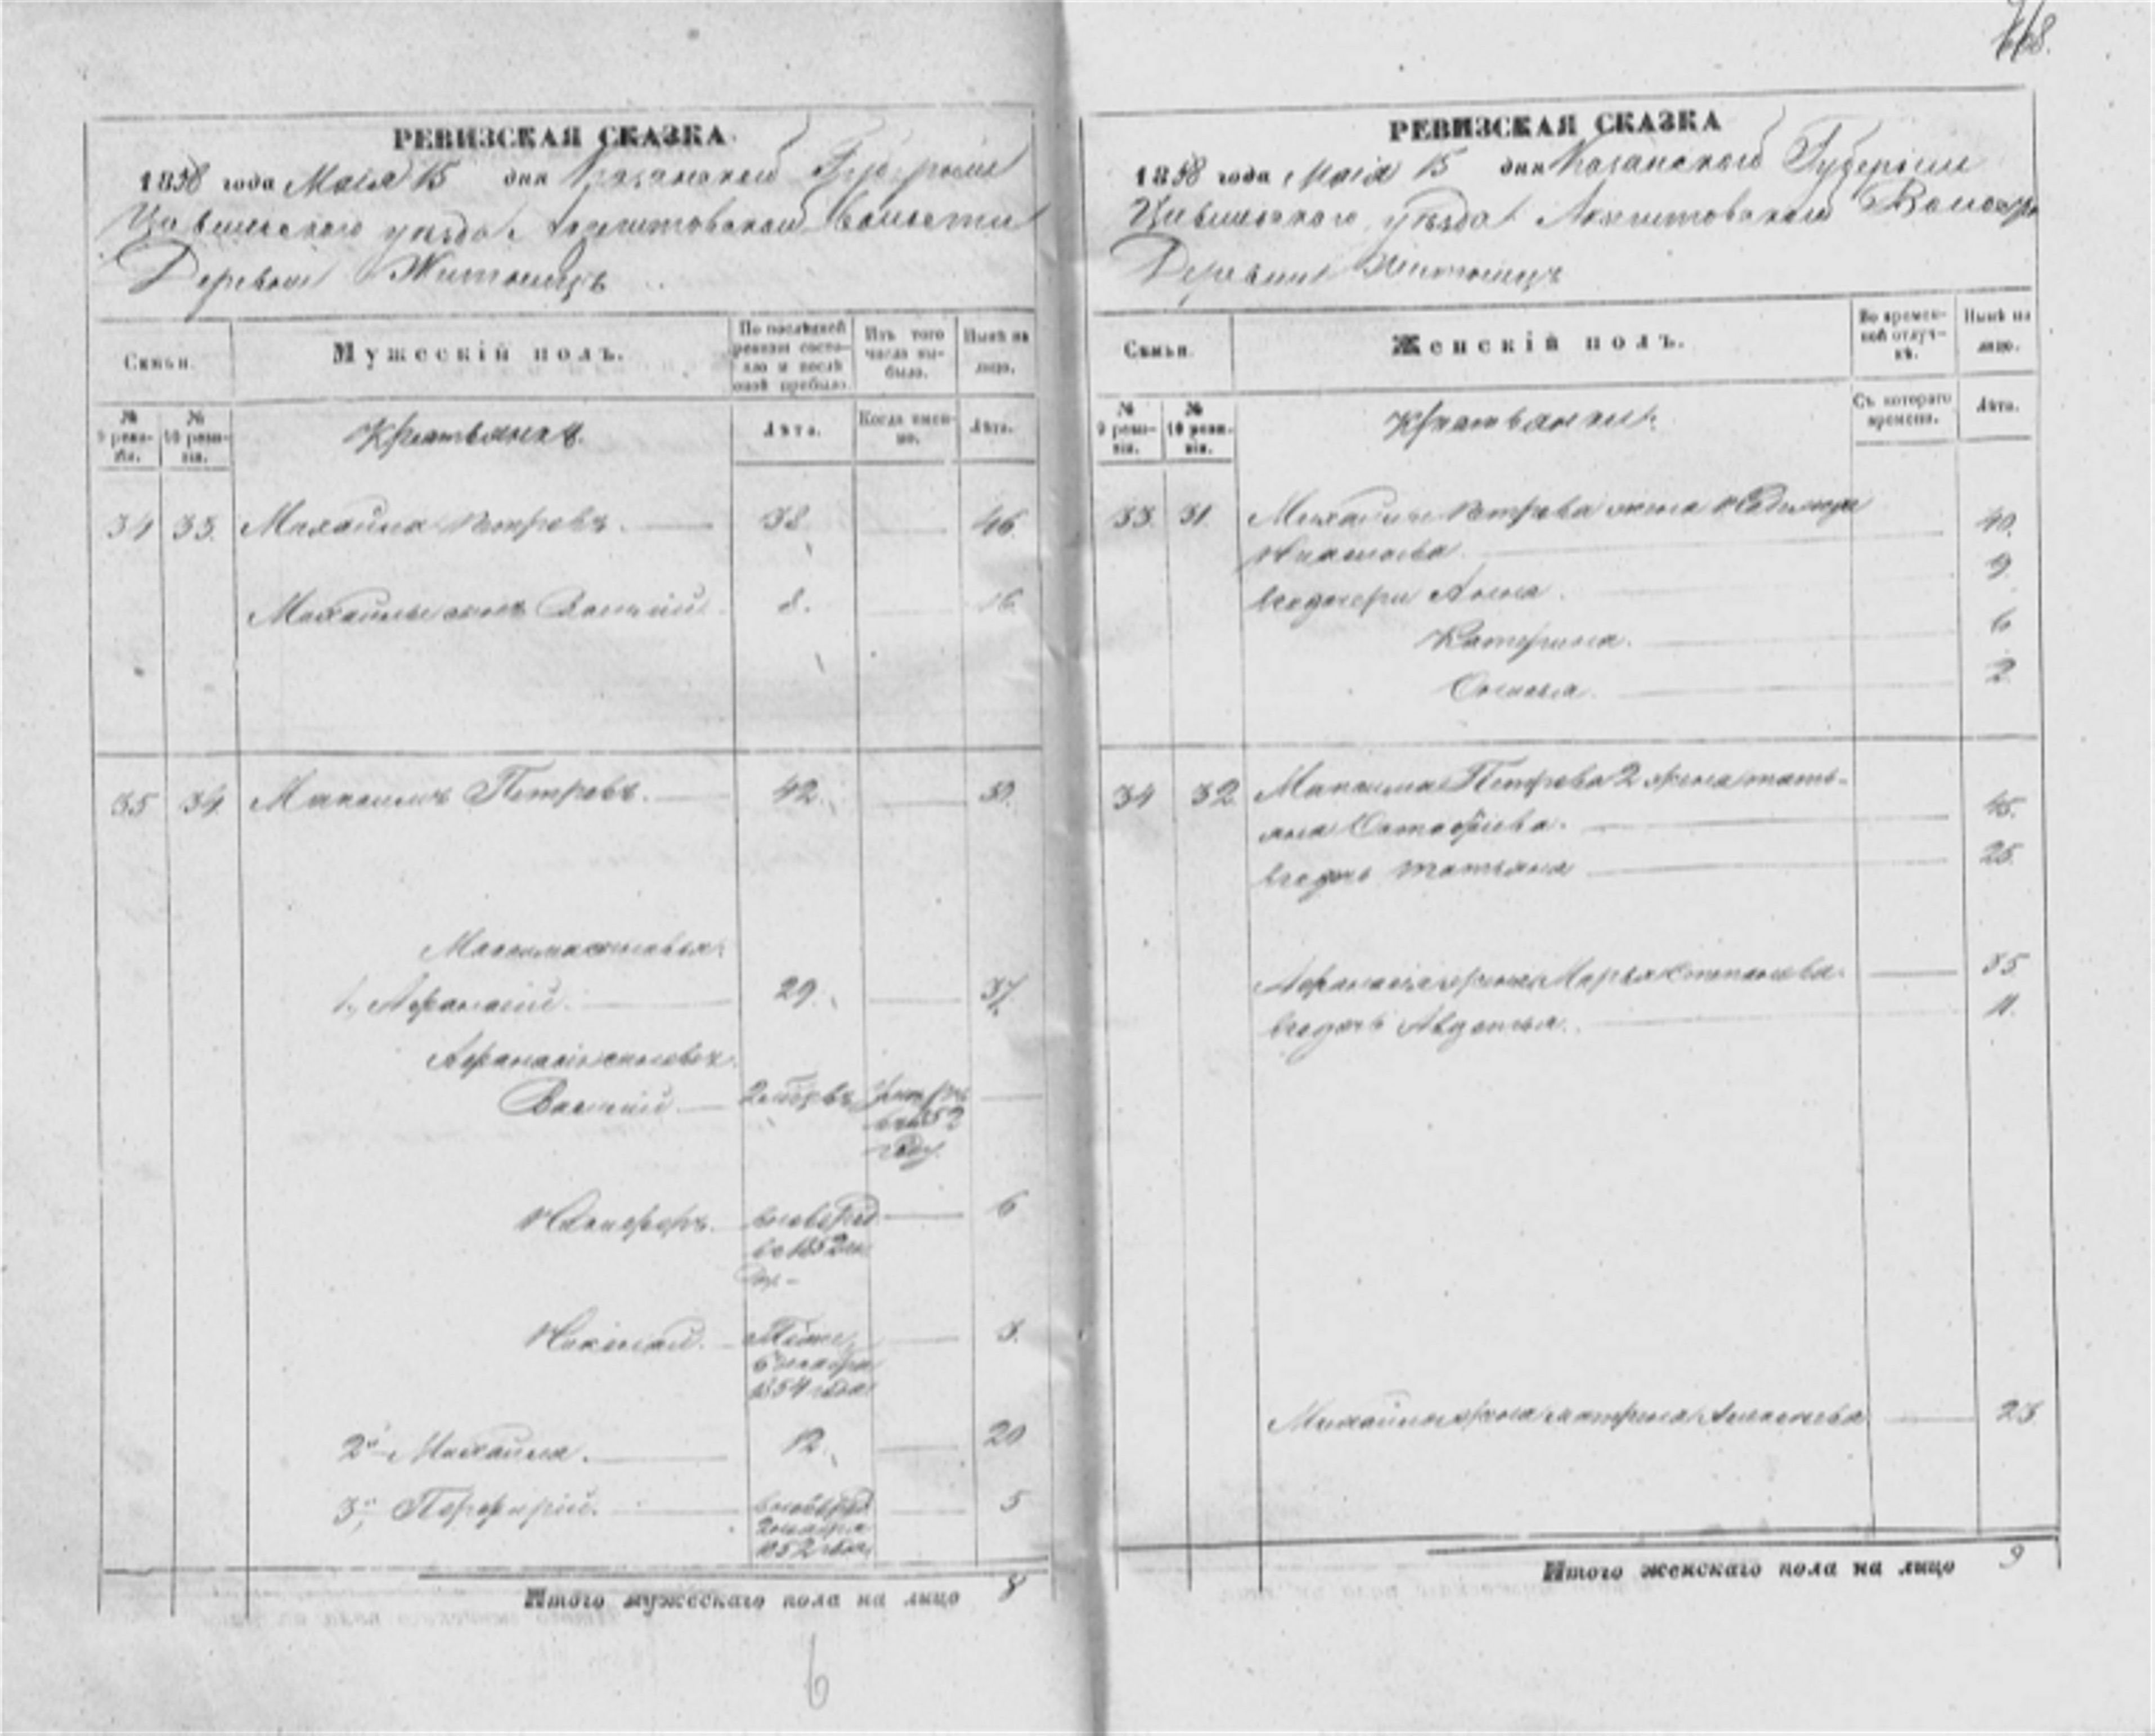 РЕВИЗСКАЯ СКАЗКА
1858 года Мая 15 дня Казанской Губернии
Цивильского уезда Волости
Деревни Житоницъ
Семьи.
Мужескій полъ.
По последней ревизіи состояло и после оной прибыло.
Изъ того числа выбыло.
Ныне на лицо.
№ 9 ревизіи.
№ 10 ревизіи.
Крестьяне
Лета.
Когда именно.
Лета.
34 33. Михайла Петровъ. 38. 46.
Михайлы сынъ Василій 8. 16.
35 34. Максимъ Петровъ. 42. 50.
Максима сыновья:
1, Афанасій. 29. 37.
Афанасія сыновья
Василій. умеръ
1852
году
Никифоръ. 6
1852
Николай. Тоже 3.
6 декабря
1854 года
2й Михайла. 12. 20
3й, Порфирій. 5
1852 года
Итого мужескаго пола на лицо 8
6
РЕВИЗСКАЯ СКАЗКА
1858 года Мая 15 дня Казанской Губерніи
Цивильского уезда Волости
Деревни Житоницъ
Семьи.
Женскій полъ.
Во временной отлучке.
Ныне на лицо.
№ 9 ревизіи.
№ 10 ревизіи.
Крестьянки.
Съ котораго времени.
Лета.
33. 31. Михайлы Петрова жена
40.
его дочери Анна. 9.
Катерина. 6
2.
34 32. Максима Петрова 2 жена Тать-
яна 45.
его дочь Татьяна 25.
Афанасія жена Марья Степанова. 35
его дочь Авдотья. 11.
Михайлы жена Матрена Алексеева 23
Итого женскаго пола на лицо 9